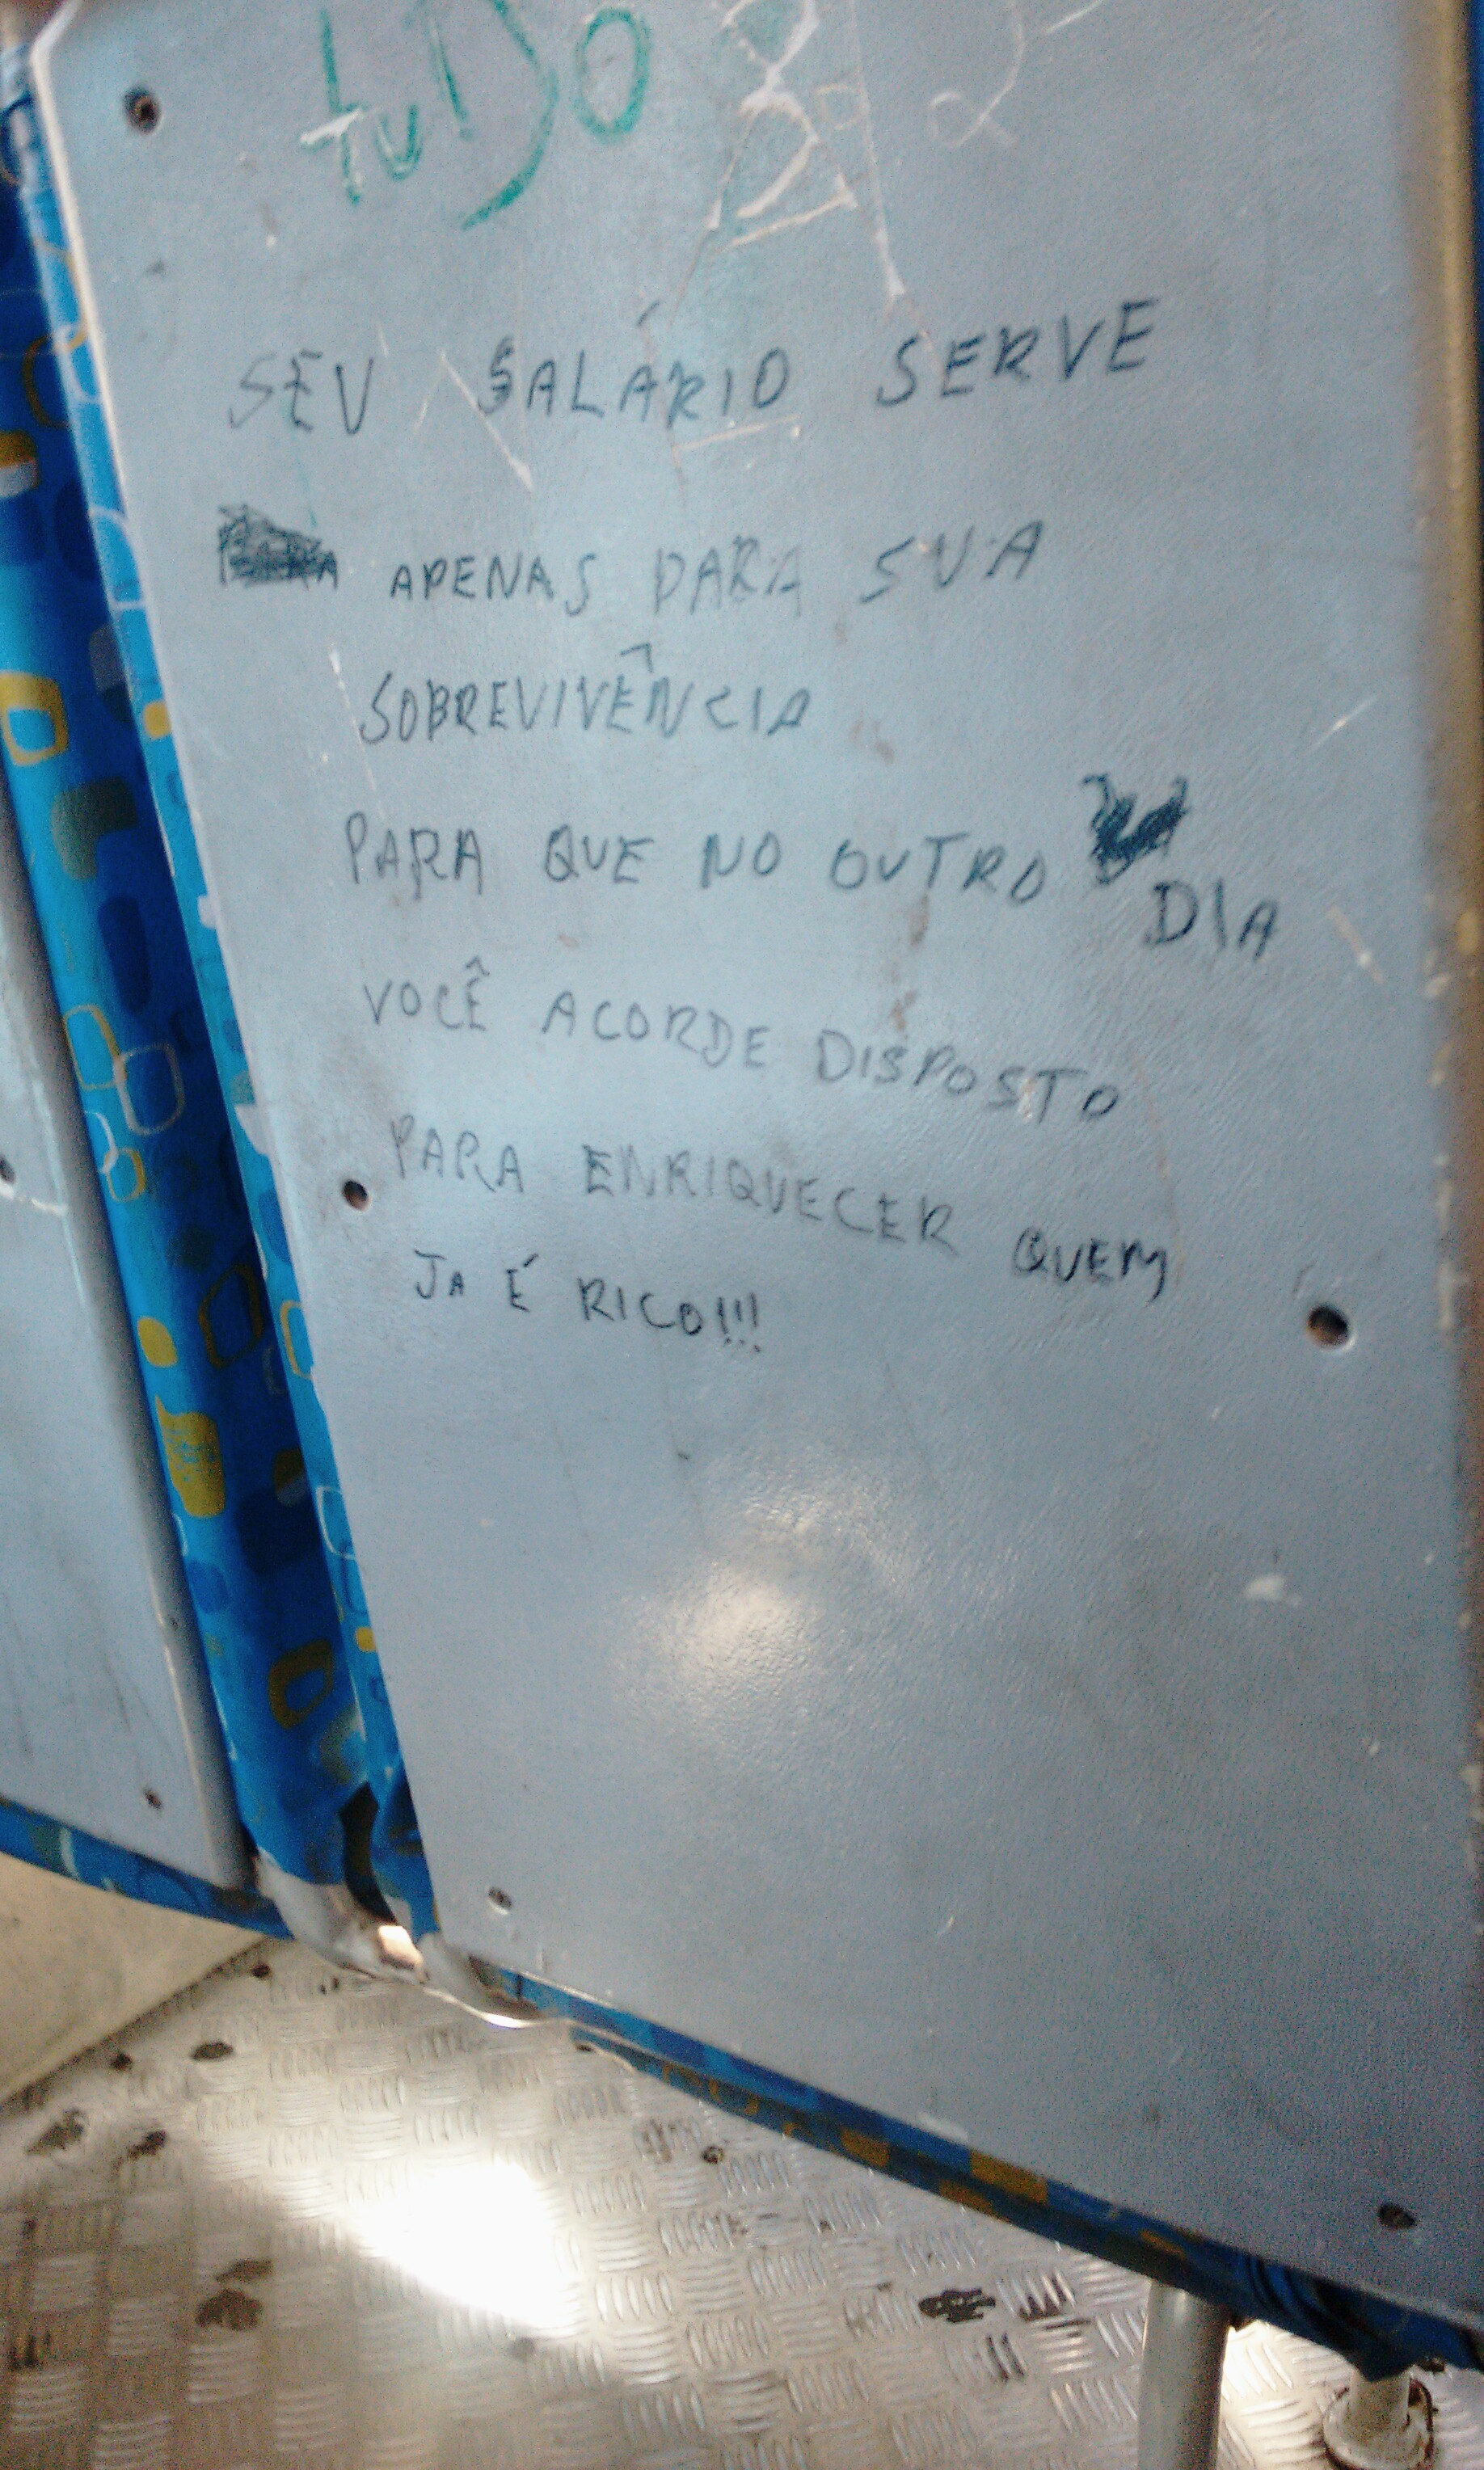 tuDO
SEU SALÁRIO SERVE
APENAS PARA SUA
SOBREVIVÊNCIA
PARA QUE NO OUTRO DIA
VOCÊ ACORDE DISPOSTO
PARA ENRIQUECER QUEM
JA É RICO!!!